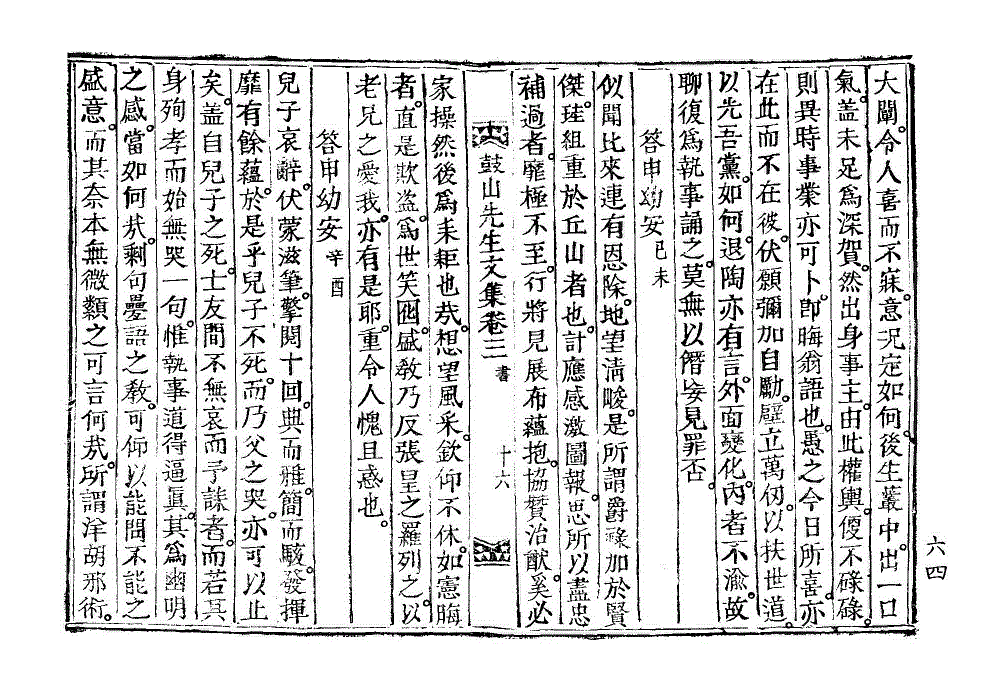 大闡。令人喜而不寐。意況定如何。後生叢中。出一口
氣。盖未足爲深賀。然出身事主。由此權輿。優不碌碌。
則異時事業。亦可卜。卽晦翁語也。愚之今日所喜。亦
在此而不在彼。伏願彌加自勵。壁立萬仞。以扶世道。
以先吾黨。如何。退陶亦有言。外面變化。內者不渝。故
聊復爲執事誦之。莫無以僭妄見罪否。
答申幼安 己未
似聞比來連有恩除。地望淸峻。是所謂爵祿加於賢
傑。珪組重於丘山者也。計應感激圖報。思所以盡忠
補過者。靡極不至。行將見展布蘊抱。協贊治猷。奚必
鼓山先生文集卷三 書 十六
家操然後爲耒耟也哉。想望風采。欽仰不休。如憲晦
者。直是欺盜。爲世笑囮。盛敎乃反張皇之羅列之。以
老兄之愛我。亦有是耶。重令人愧且惑也。
答申幼安 辛酉
兒子哀辭。伏蒙滋筆。擎閱十回。典而雅。簡而駭。發揮
靡有餘蘊。於是乎兒子不死。而乃父之哭。亦可以止
矣。盖自兒子之死。士友間不無哀而予誄者。而若其
身殉孝而始無哭一句。惟執事道得逼眞。其爲幽明
之感。當如何哉。剩句疊語之敎。可仰以能問不能之
盛意。而其奈本無微類之可言何哉。所謂洋胡那術。
六四